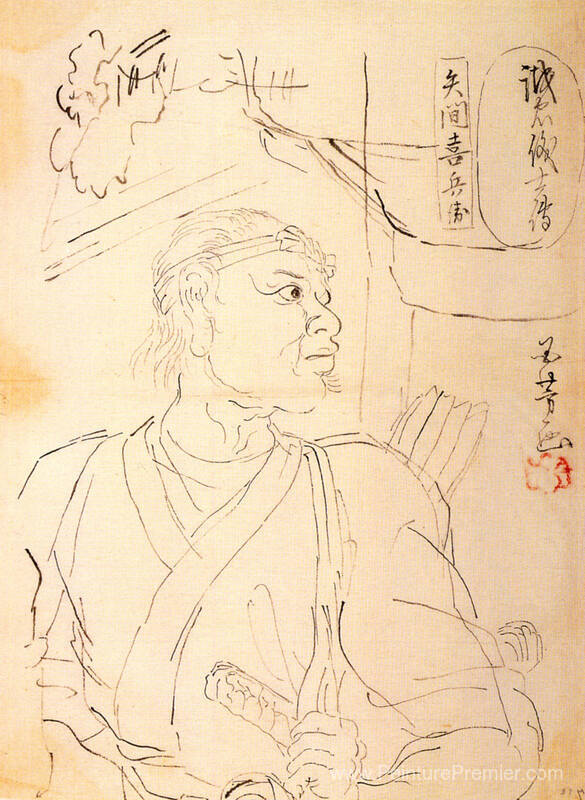 誠忠義士傳
矢間喜兵衛
国芳画
www.PeinturePremier.com